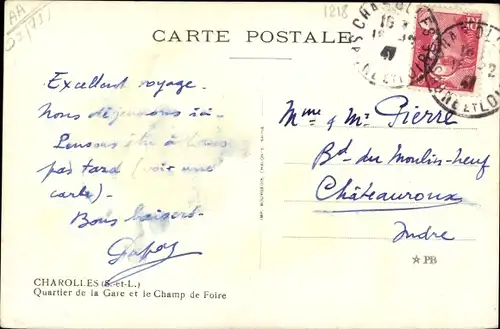 AA
1218
CARTE POSTALE
CHAROLLES
Excellent voyage.
Nous déjeunons ici.
Pensons être à
pas tard (voir une
carte).
Bons baisers.
Mme & Mr Pierre
Bd. du Moulin-neuf
Châteauroux
Indre
PB
CHAROLLES (S.-et-L.)
Quartier de la Gare et le Champ de Foire